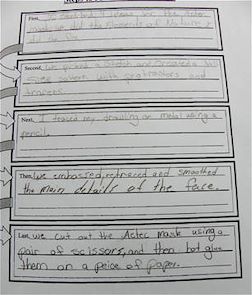 First, I sketched 4 ideas for the Aztec
mask
Second, we picked a sketch and created a
size pattern with protractors and
tracers.
Next, I traced my drawing on metal using a
pencil.
Then, we embossed, retraced and smoothed
the main details of the face.
Last, we cut out the Aztec mask using a
pair of scissors, and then hot glue
them on a peice of paper.